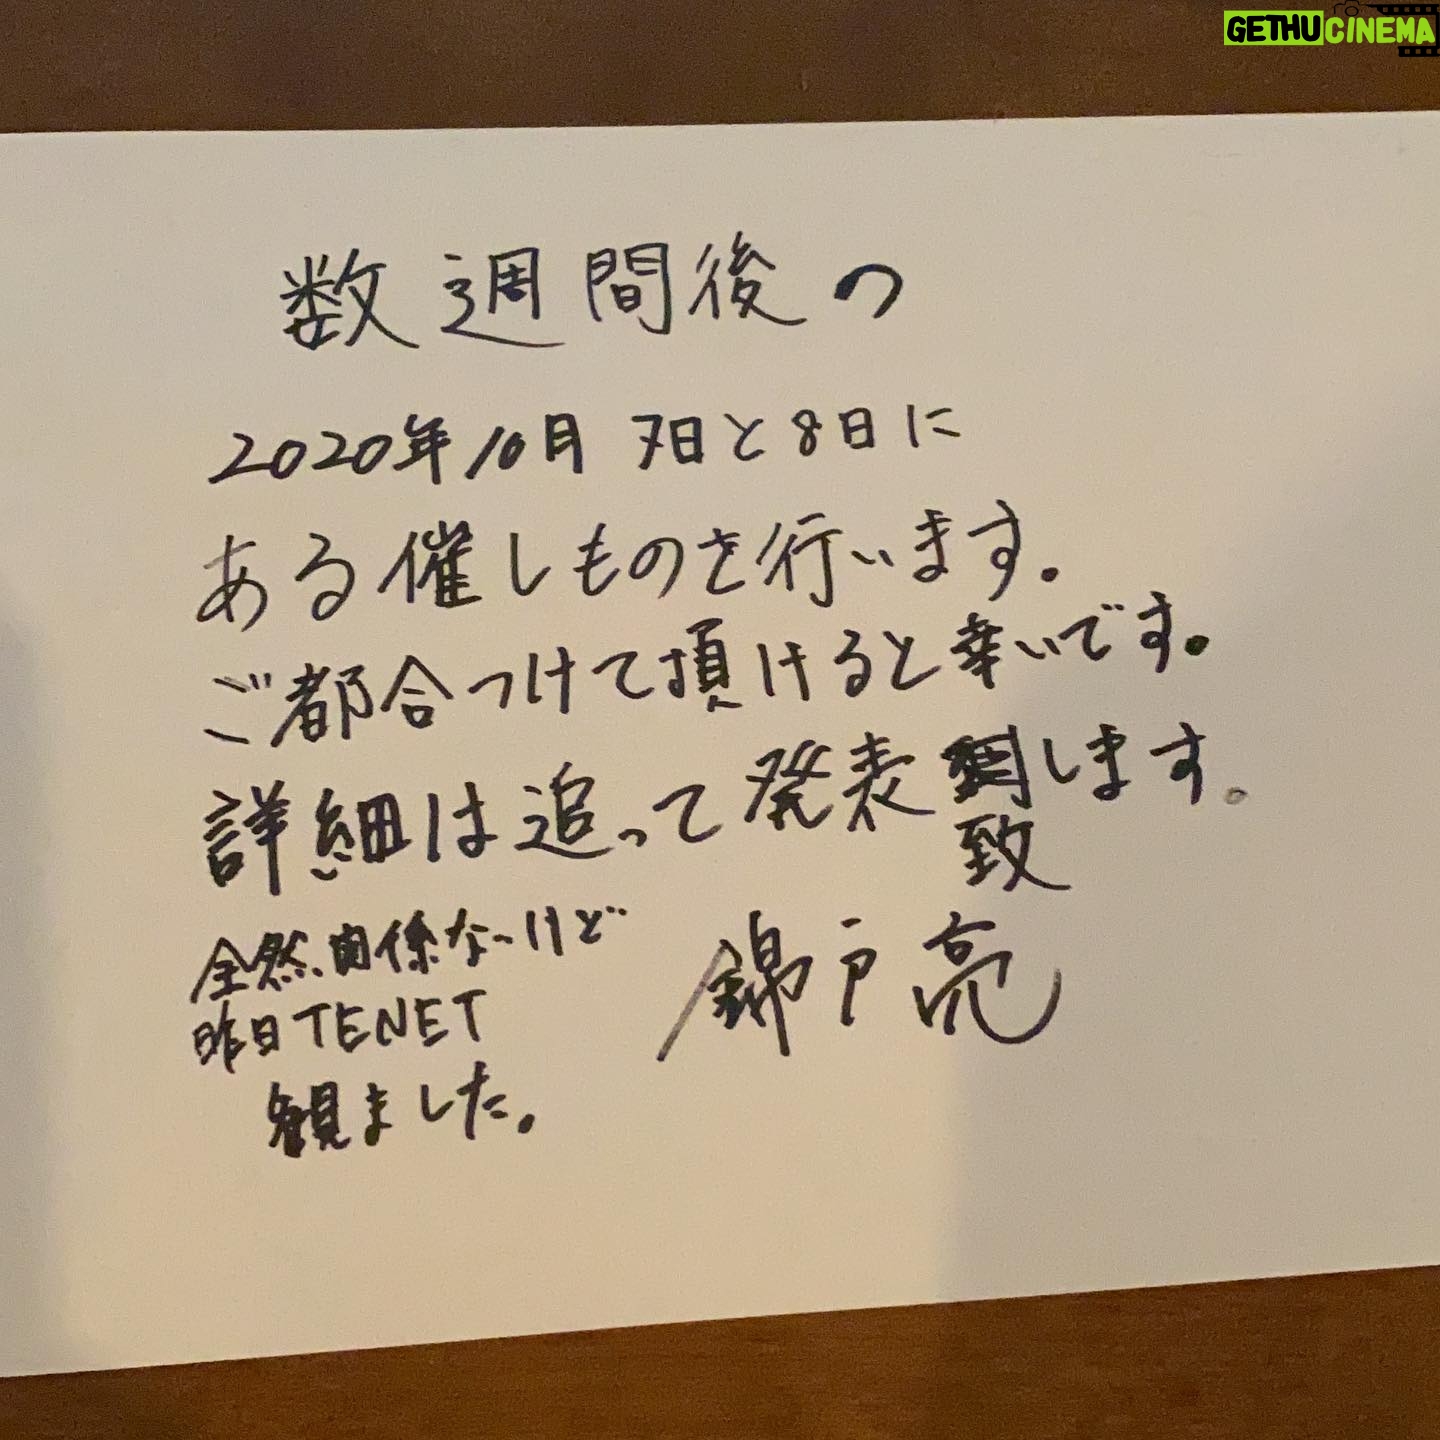 GETHUCINEMA
数週間後の
2020年10月 7日と8日に
ある催しものを行います。
ご都合つけて頂けると幸いです。
詳細は追って発表致します。
全然関係ないけど
昨日TENET
観ました。
錦戸亮